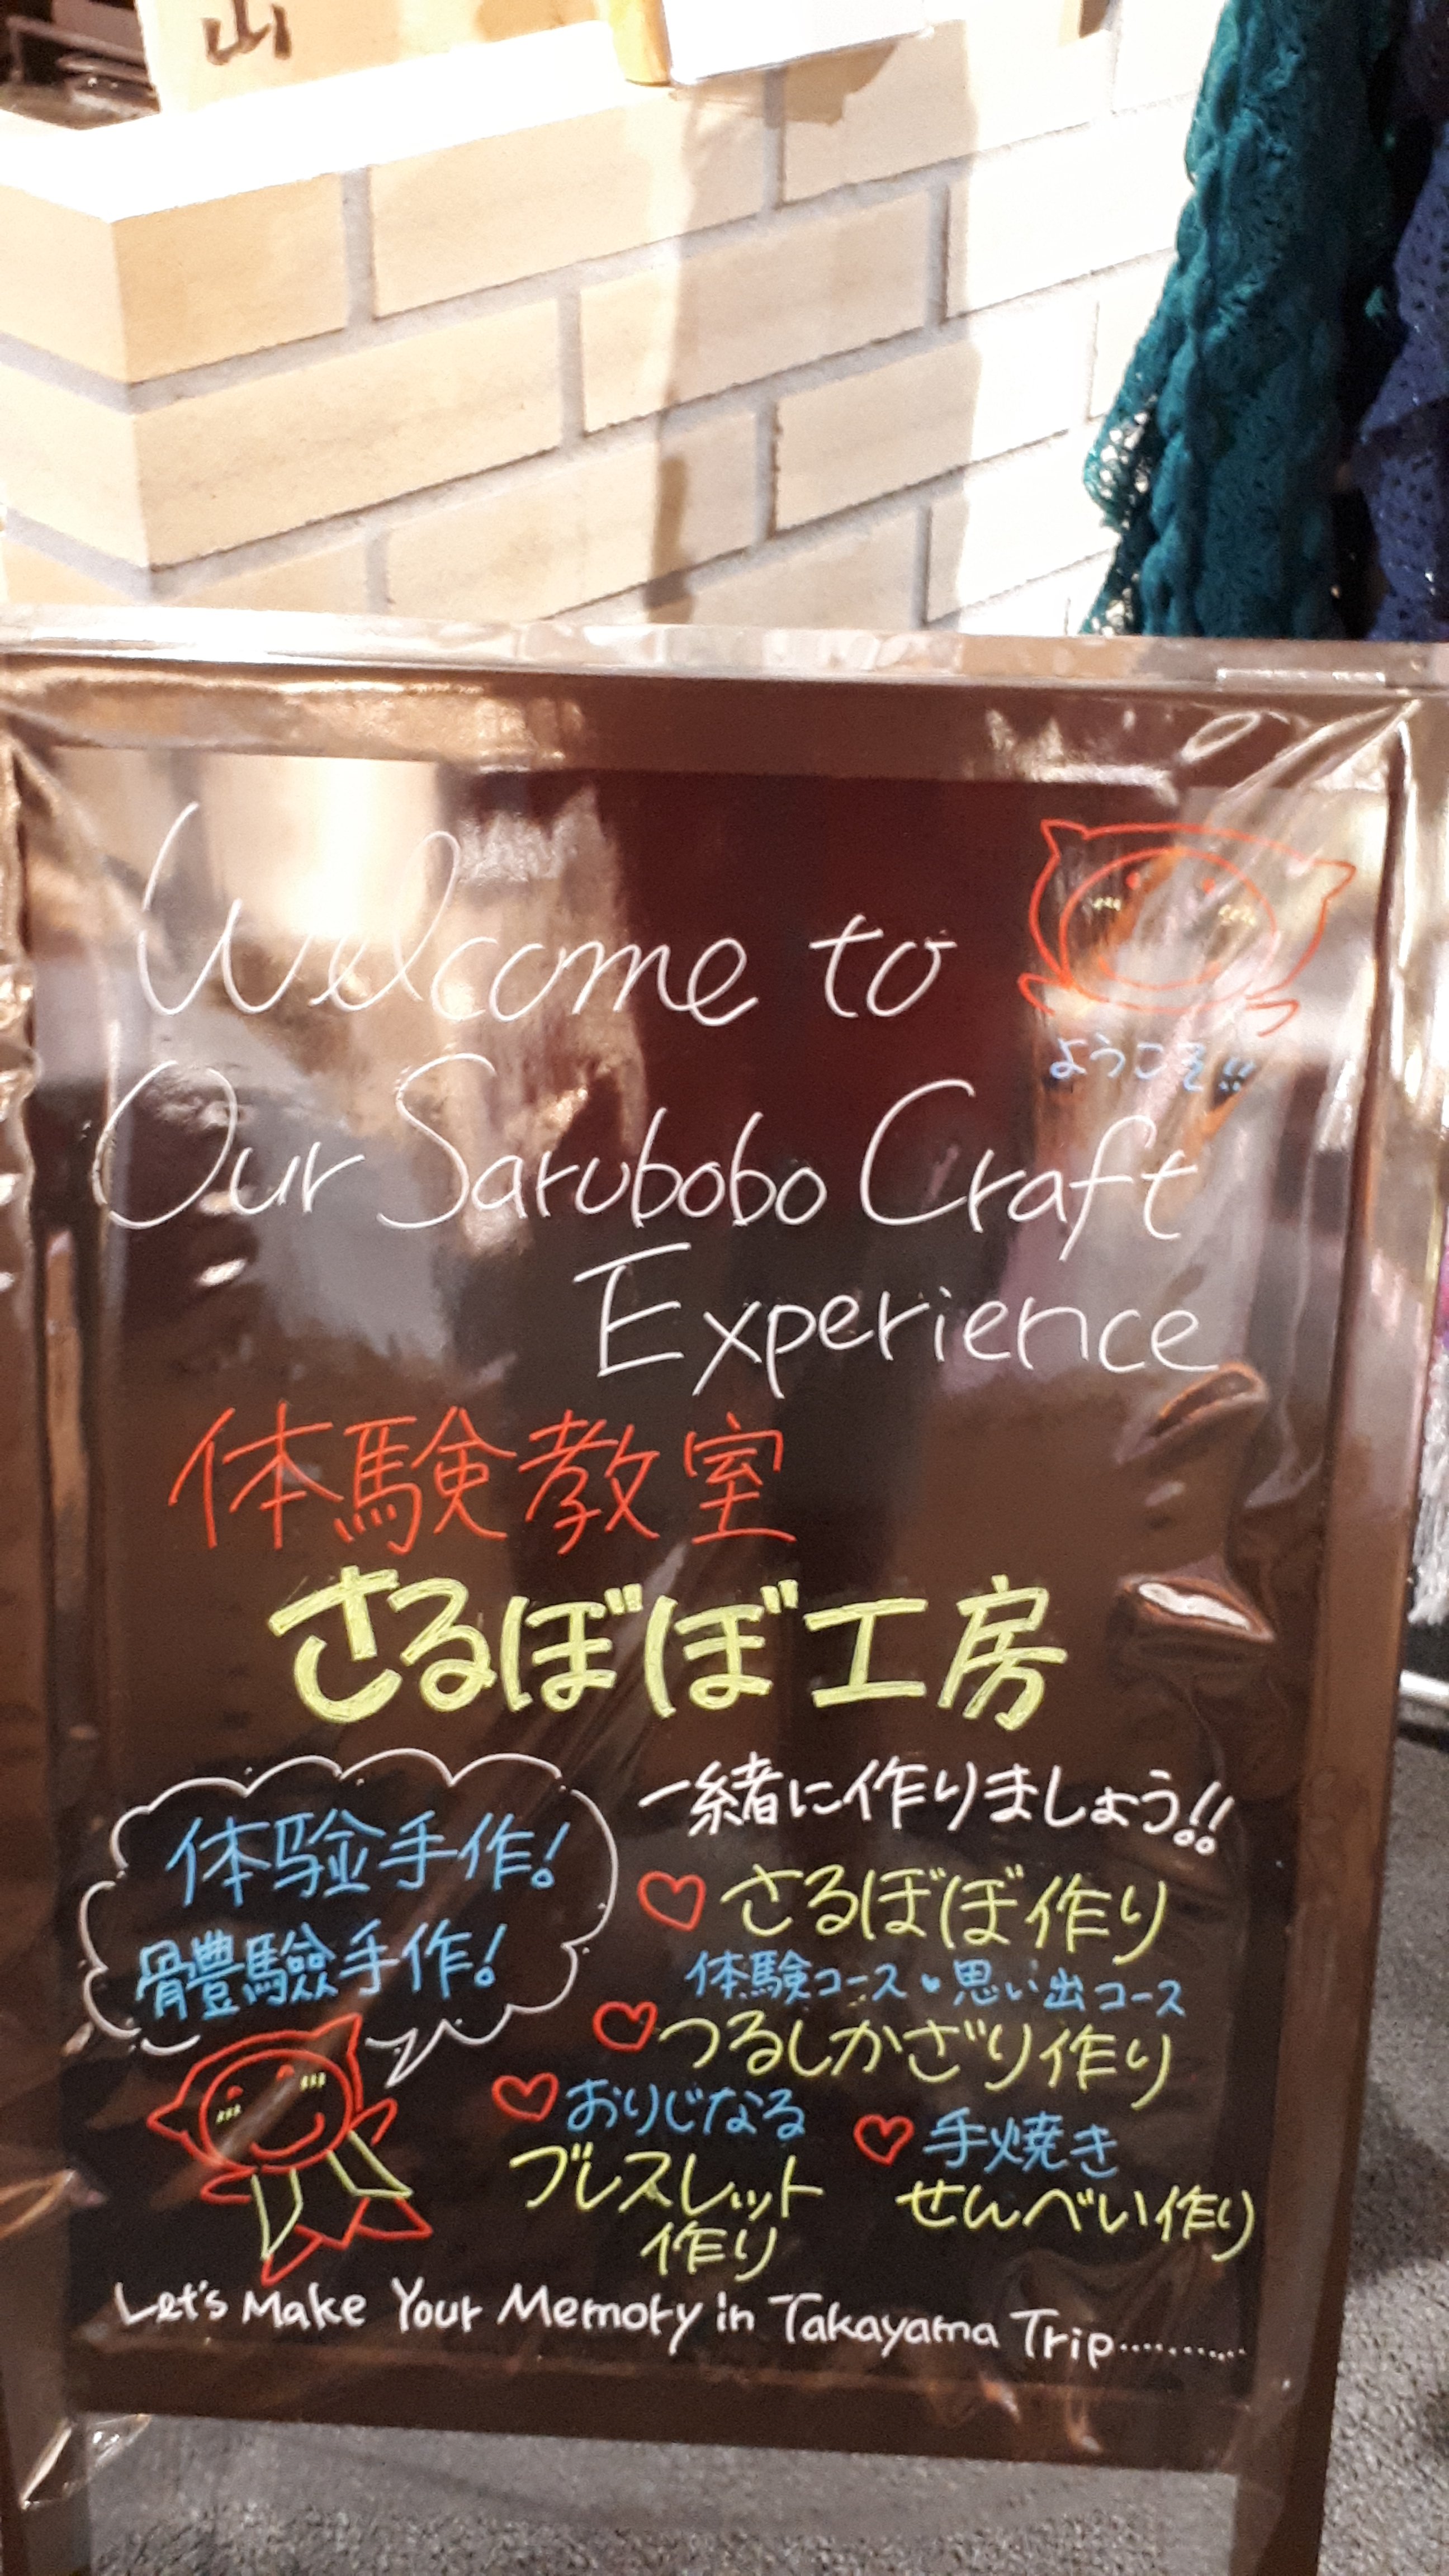 山
Welcome to
ようこそ!!
Our Sarubobo Craft
Experience
体験教室
さるぼぼ工房
体验手作!
體驗手作!
一緒に作りましょう!!
さるぼぼ作り
体験コース・思い出コース
つるしかざり作り
おりじなる
ブレスレット
作り
手焼き
せんべい作り
Let's Make Your Memory in Takayama Trip...........